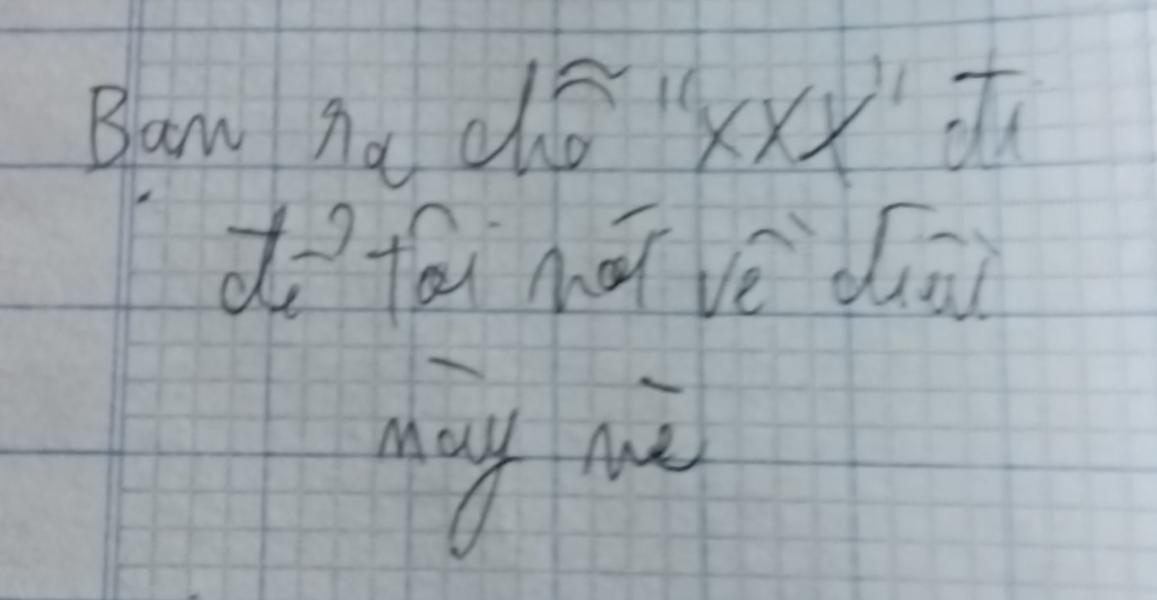 Bạn ra chỗ "XXX" đi
để tôi nói về điều
này nè